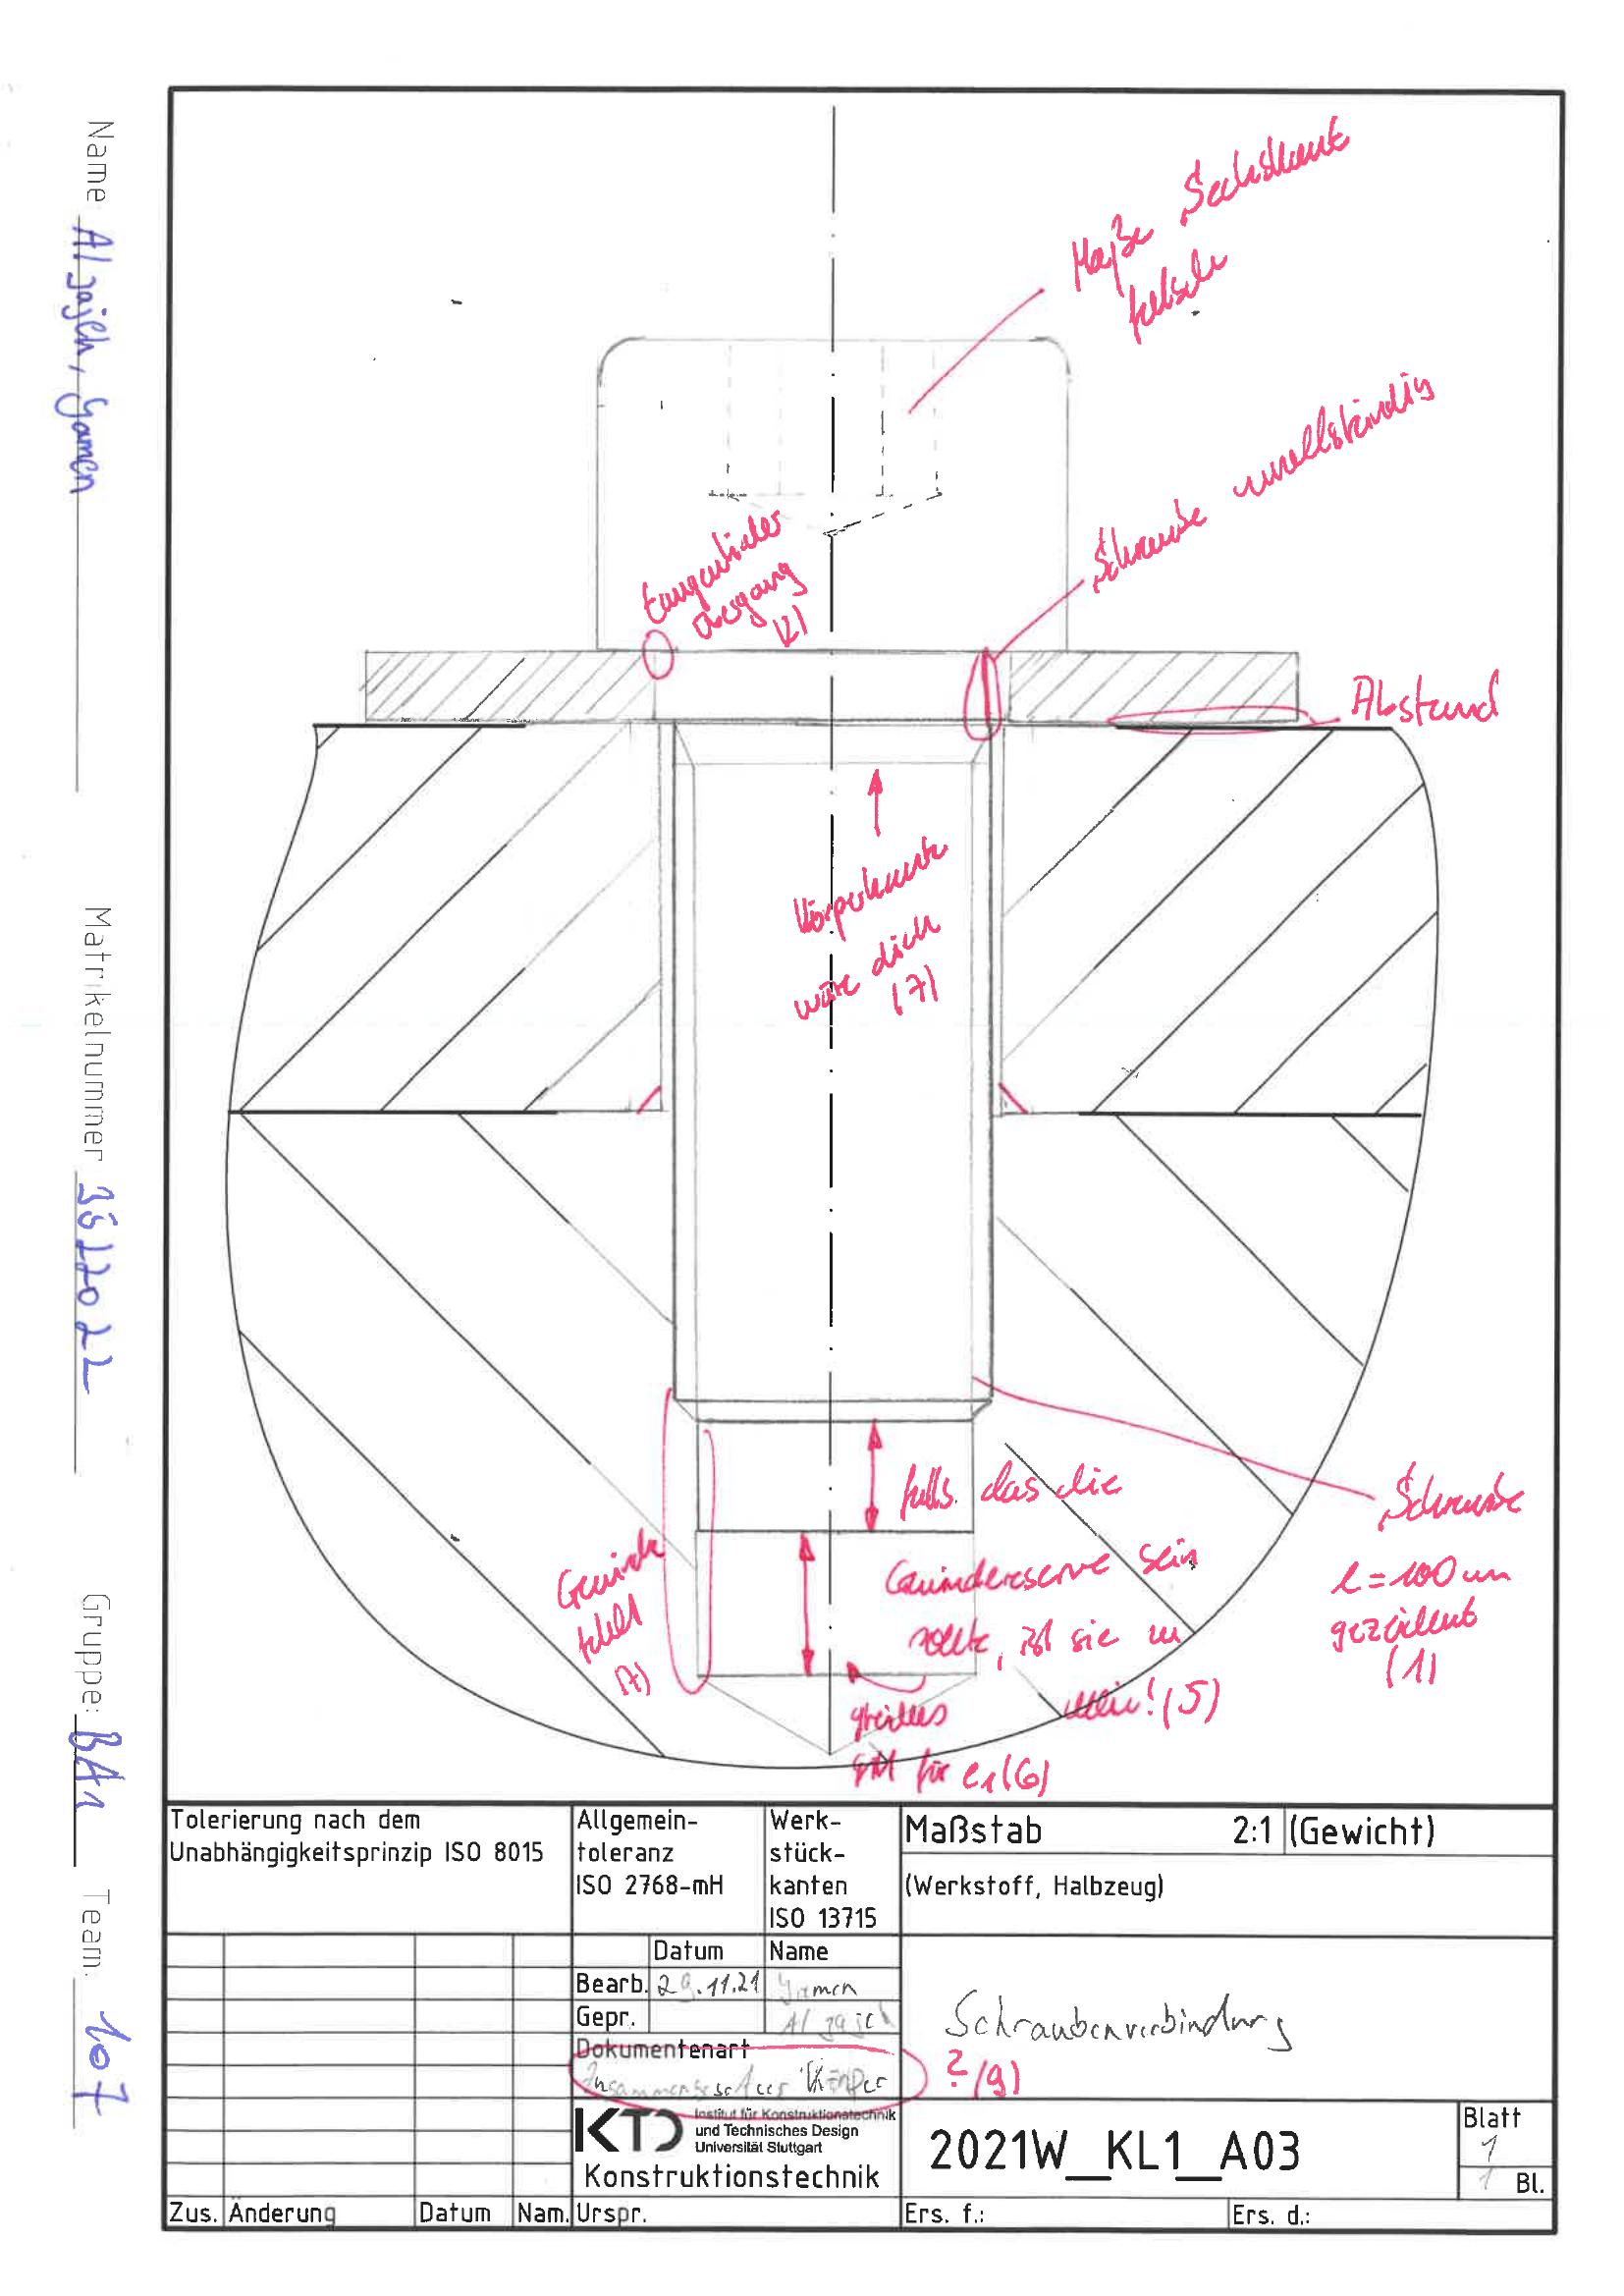 Name Aljajeh, Yamen
Matrikelnummer 3672022
Gruppe: BAu
Team: 107
Maße Sechskant
falsch
Schraube unvollständig
tangentialer
Übergang
(2)
Abstand
Körperkante
wäre dick
(7)
Gewinde
fehlt
(7)
falls das die
Gewindereserve sein
sollte, ist sie zu
klein! (5)
für e1 (6)
Schraube
l=100 mm
gezeichnet
(1)
Tolerierung nach dem
Unabhängigkeitsprinzip ISO 8015
Allgemein-
toleranz
ISO 2768-mH
Werk-
stück-
kanten
ISO 13715
Maßstab 2:1 (Gewicht)
(Werkstoff, Halbzeug)
Datum Name
Bearb. 29.11.21 Yamen
Gepr. Al jajeh
Dokumentenart
Zusammengesetzter Körper
? (9)
Schraubenverbindung
KTD
Institut für Konstruktionstechnik
und Technisches Design
Universität Stuttgart
Konstruktionstechnik
2021W_KL1_A03
Blatt
1
1 Bl.
Zus. Änderung Datum Nam. Urspr. Ers. f.: Ers. d.: